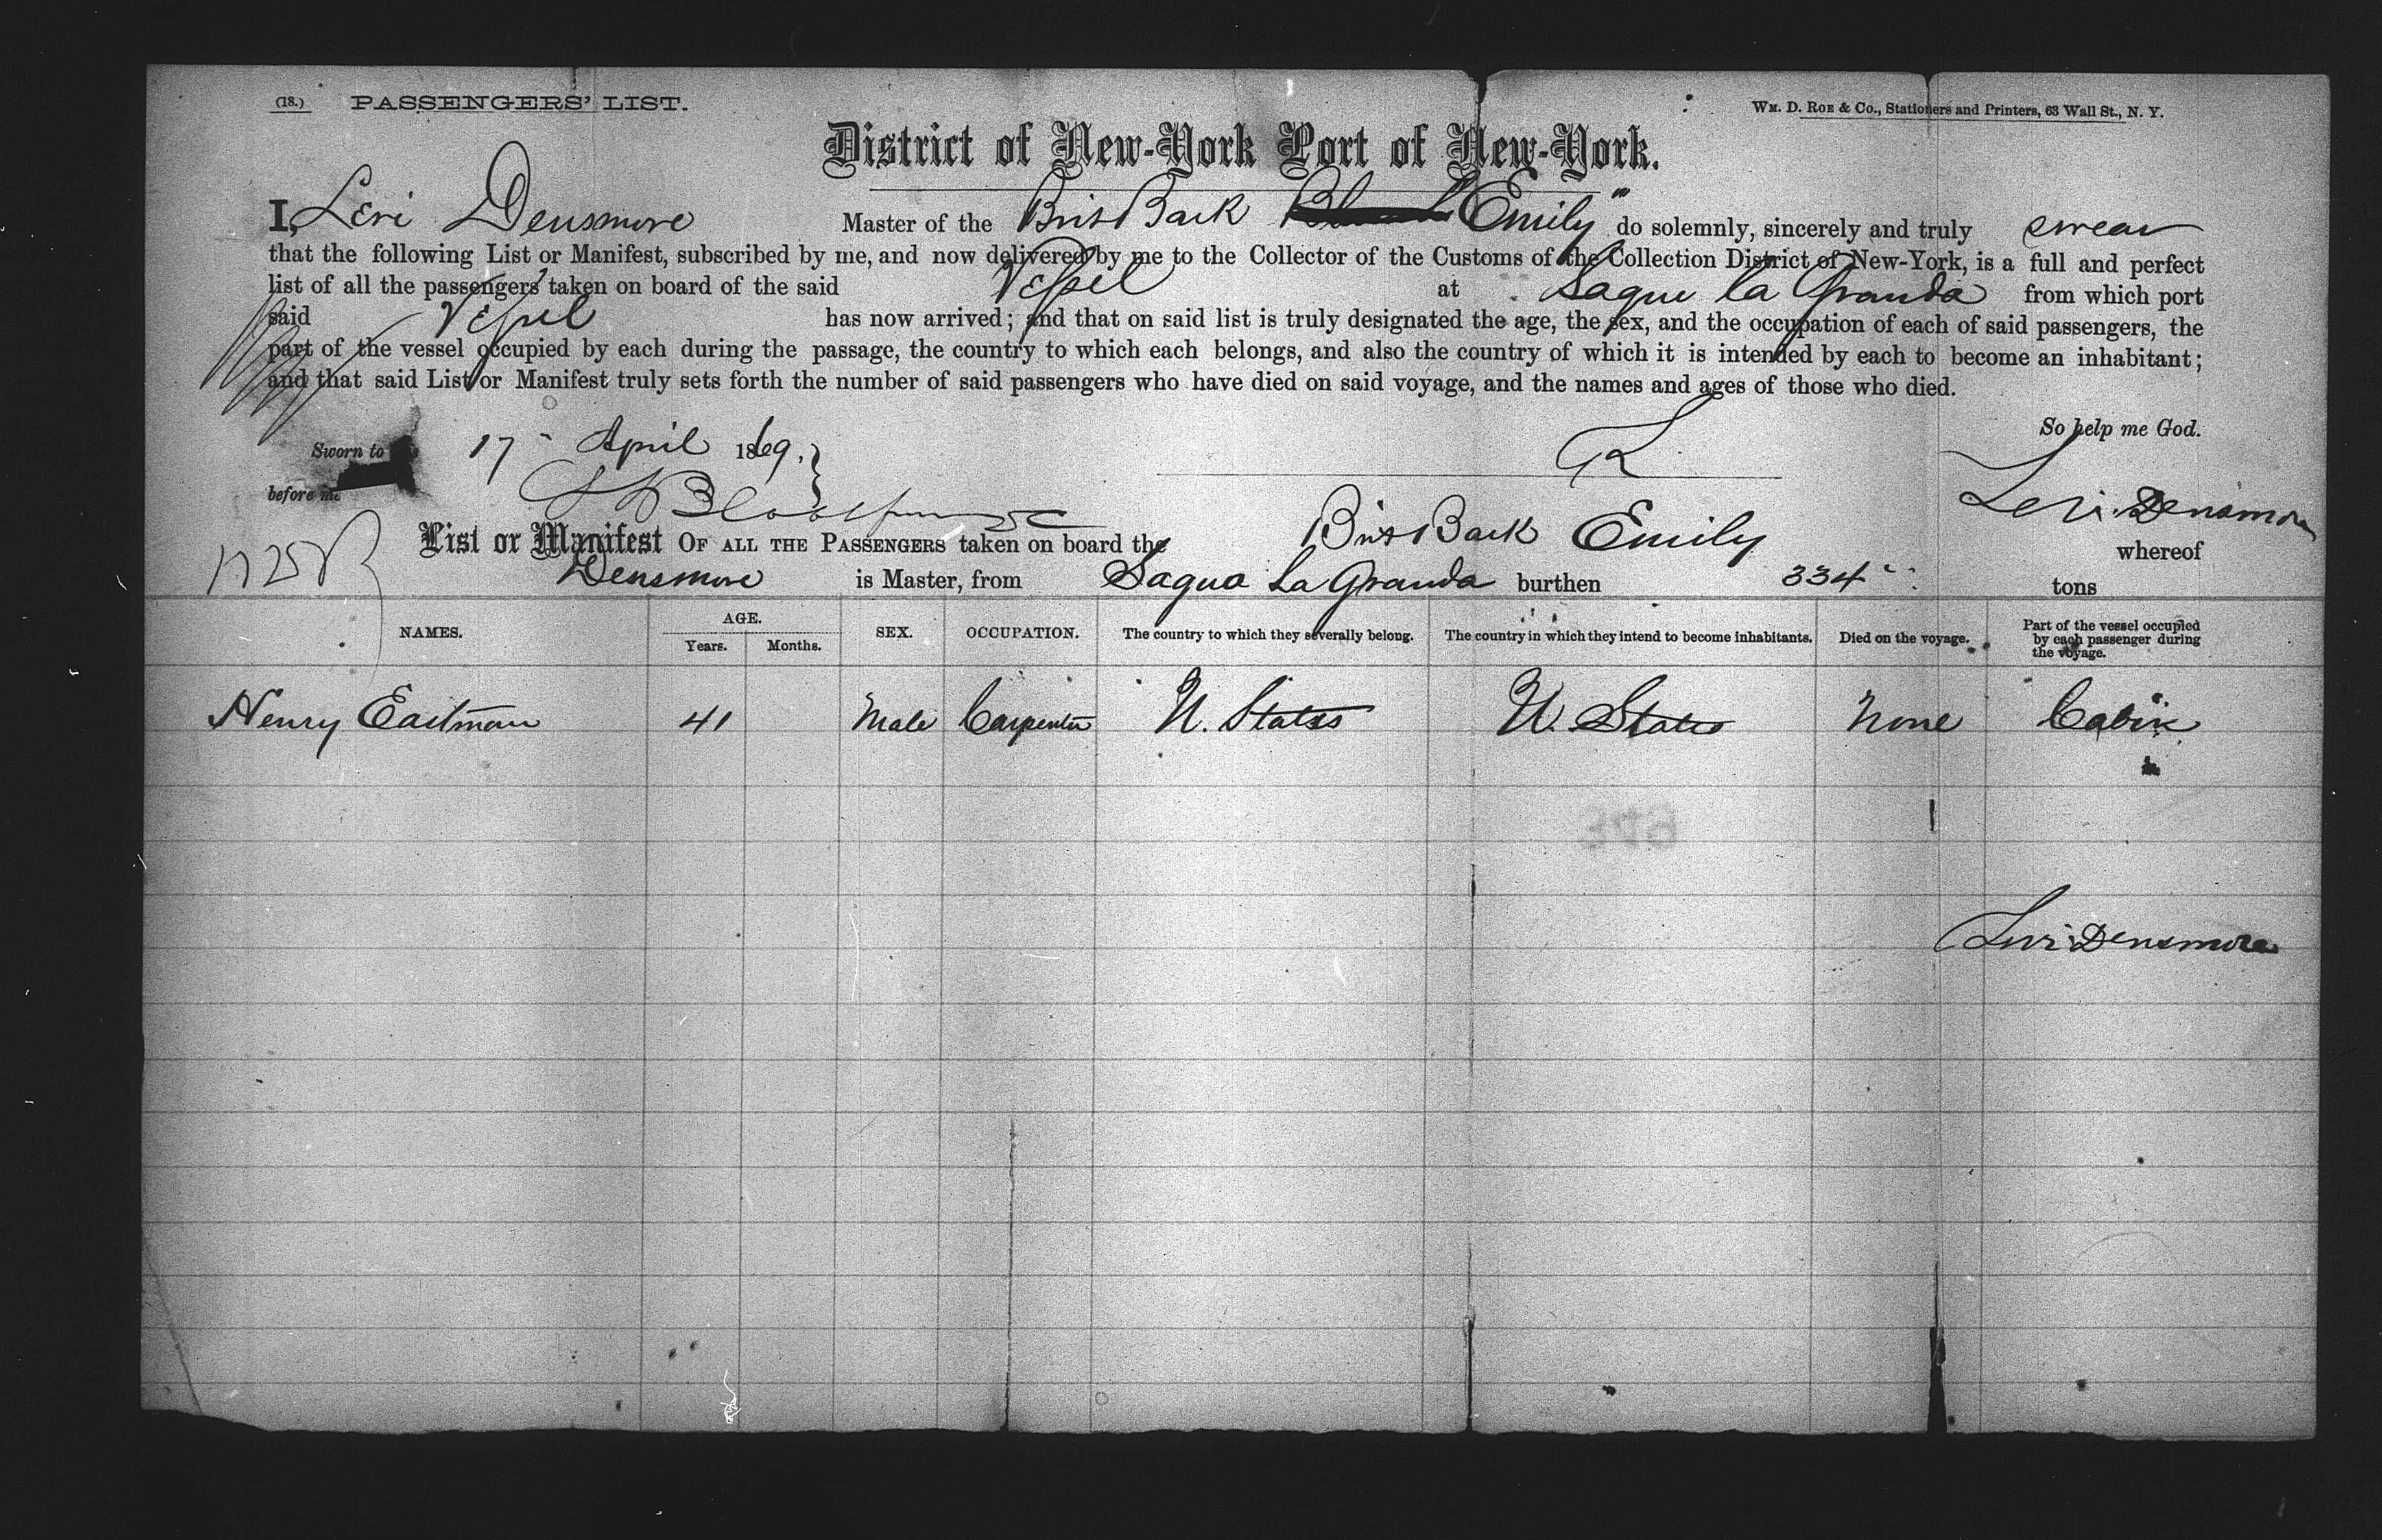 (18.) PASSENGERS' LIST. WM. D. ROE & CO., Stationers and Printers, 63 Wall St., N. Y.
District of New-York Port of New-York.
I, Levi Densmore Master of the Brit Bark "Emily" do solemnly, sincerely and truly swear
that the following List or Manifest, subscribed by me, and now delivered by me to the Collector of the Customs of the Collection District of New-York, is a full and perfect
list of all the passengers taken on board of the said Vessel at Sague la Granda from which port
said Vessel has now arrived; and that on said list is truly designated the age, the sex, and the occupation of each of said passengers, the
part of the vessel occupied by each during the passage, the country to which each belongs, and also the country of which it is intended by each to become an inhabitant;
and that said List or Manifest truly sets forth the number of said passengers who have died on said voyage, and the names and ages of those who died.
So help me God.
Sworn to 17 April 1869.
before me Levi Densmore
List or Manifest OF ALL THE PASSENGERS taken on board the Brit Bark Emily whereof
Densmore is Master, from Sagua La Granda burthen 334 tons
NAMES. AGE. Years. Months. SEX. OCCUPATION. The country to which they severally belong. The country in which they intend to become inhabitants. Died on the voyage. Part of the vessel occupied by each passenger during the voyage.
Henry Eastman 41 Male Carpenter U. States U. States None Cabin
Levi Densmore